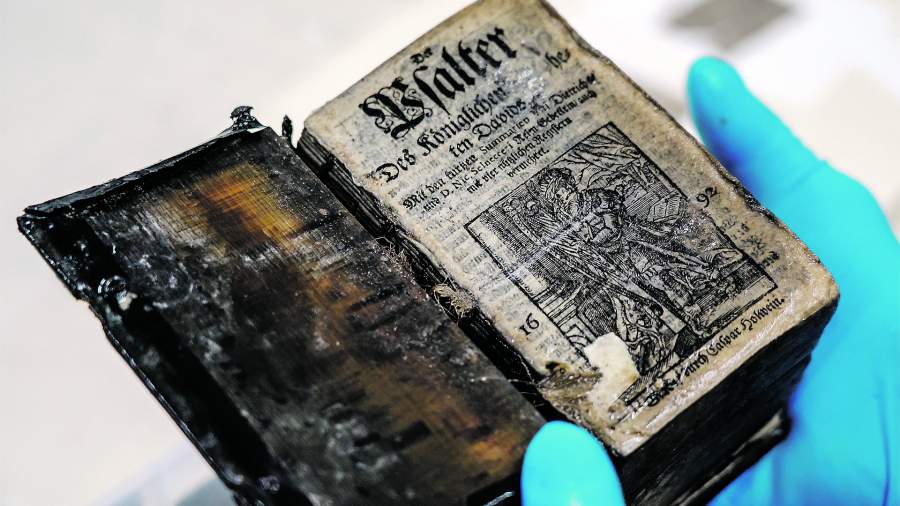 Der
Psalter
Des Königlichen
ten Davids
Mit den kurtzen Summarien Viti Dietrichs
und D. Nic. Selnecceri Reim-Gebetlein/ auch
mit vier nützlichen Registern
vermehret.
16 92
durch Caspar Holwein.